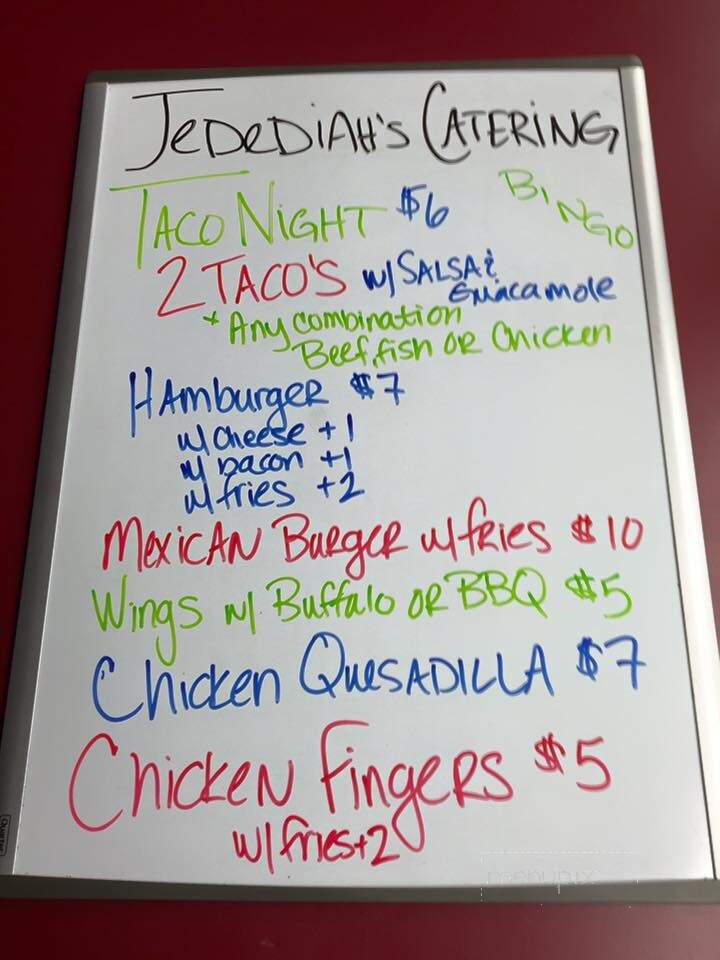 JeDeDiAH's CATERING
TACO NIGHT $6
BINGO
2 TACO'S w/ SALSA &
Guacamole
* Any combination
Beef, fish OR Chicken
HAmburgeR $7
w/ cheese +1
w/ bacon +1
w/ fries +2
MexicAN BurgeR w/ fRies $10
Wings w/ Buffalo OR BBQ $5
Chicken QuesADILLA $7
ChickeN fingeRs $5
w/ fries +2
menupix